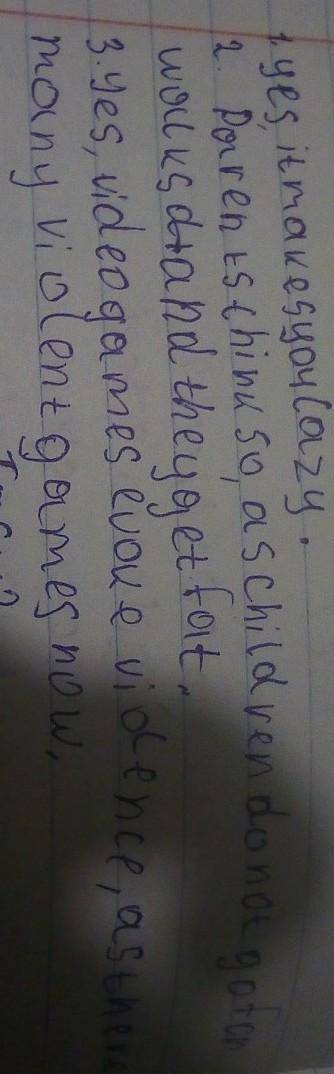 1. yes, it makes you lazy.
2. Parents think so, as children do not go for
walks and they get fat.
3. yes, video games evoke violence, as there
many violent games now,